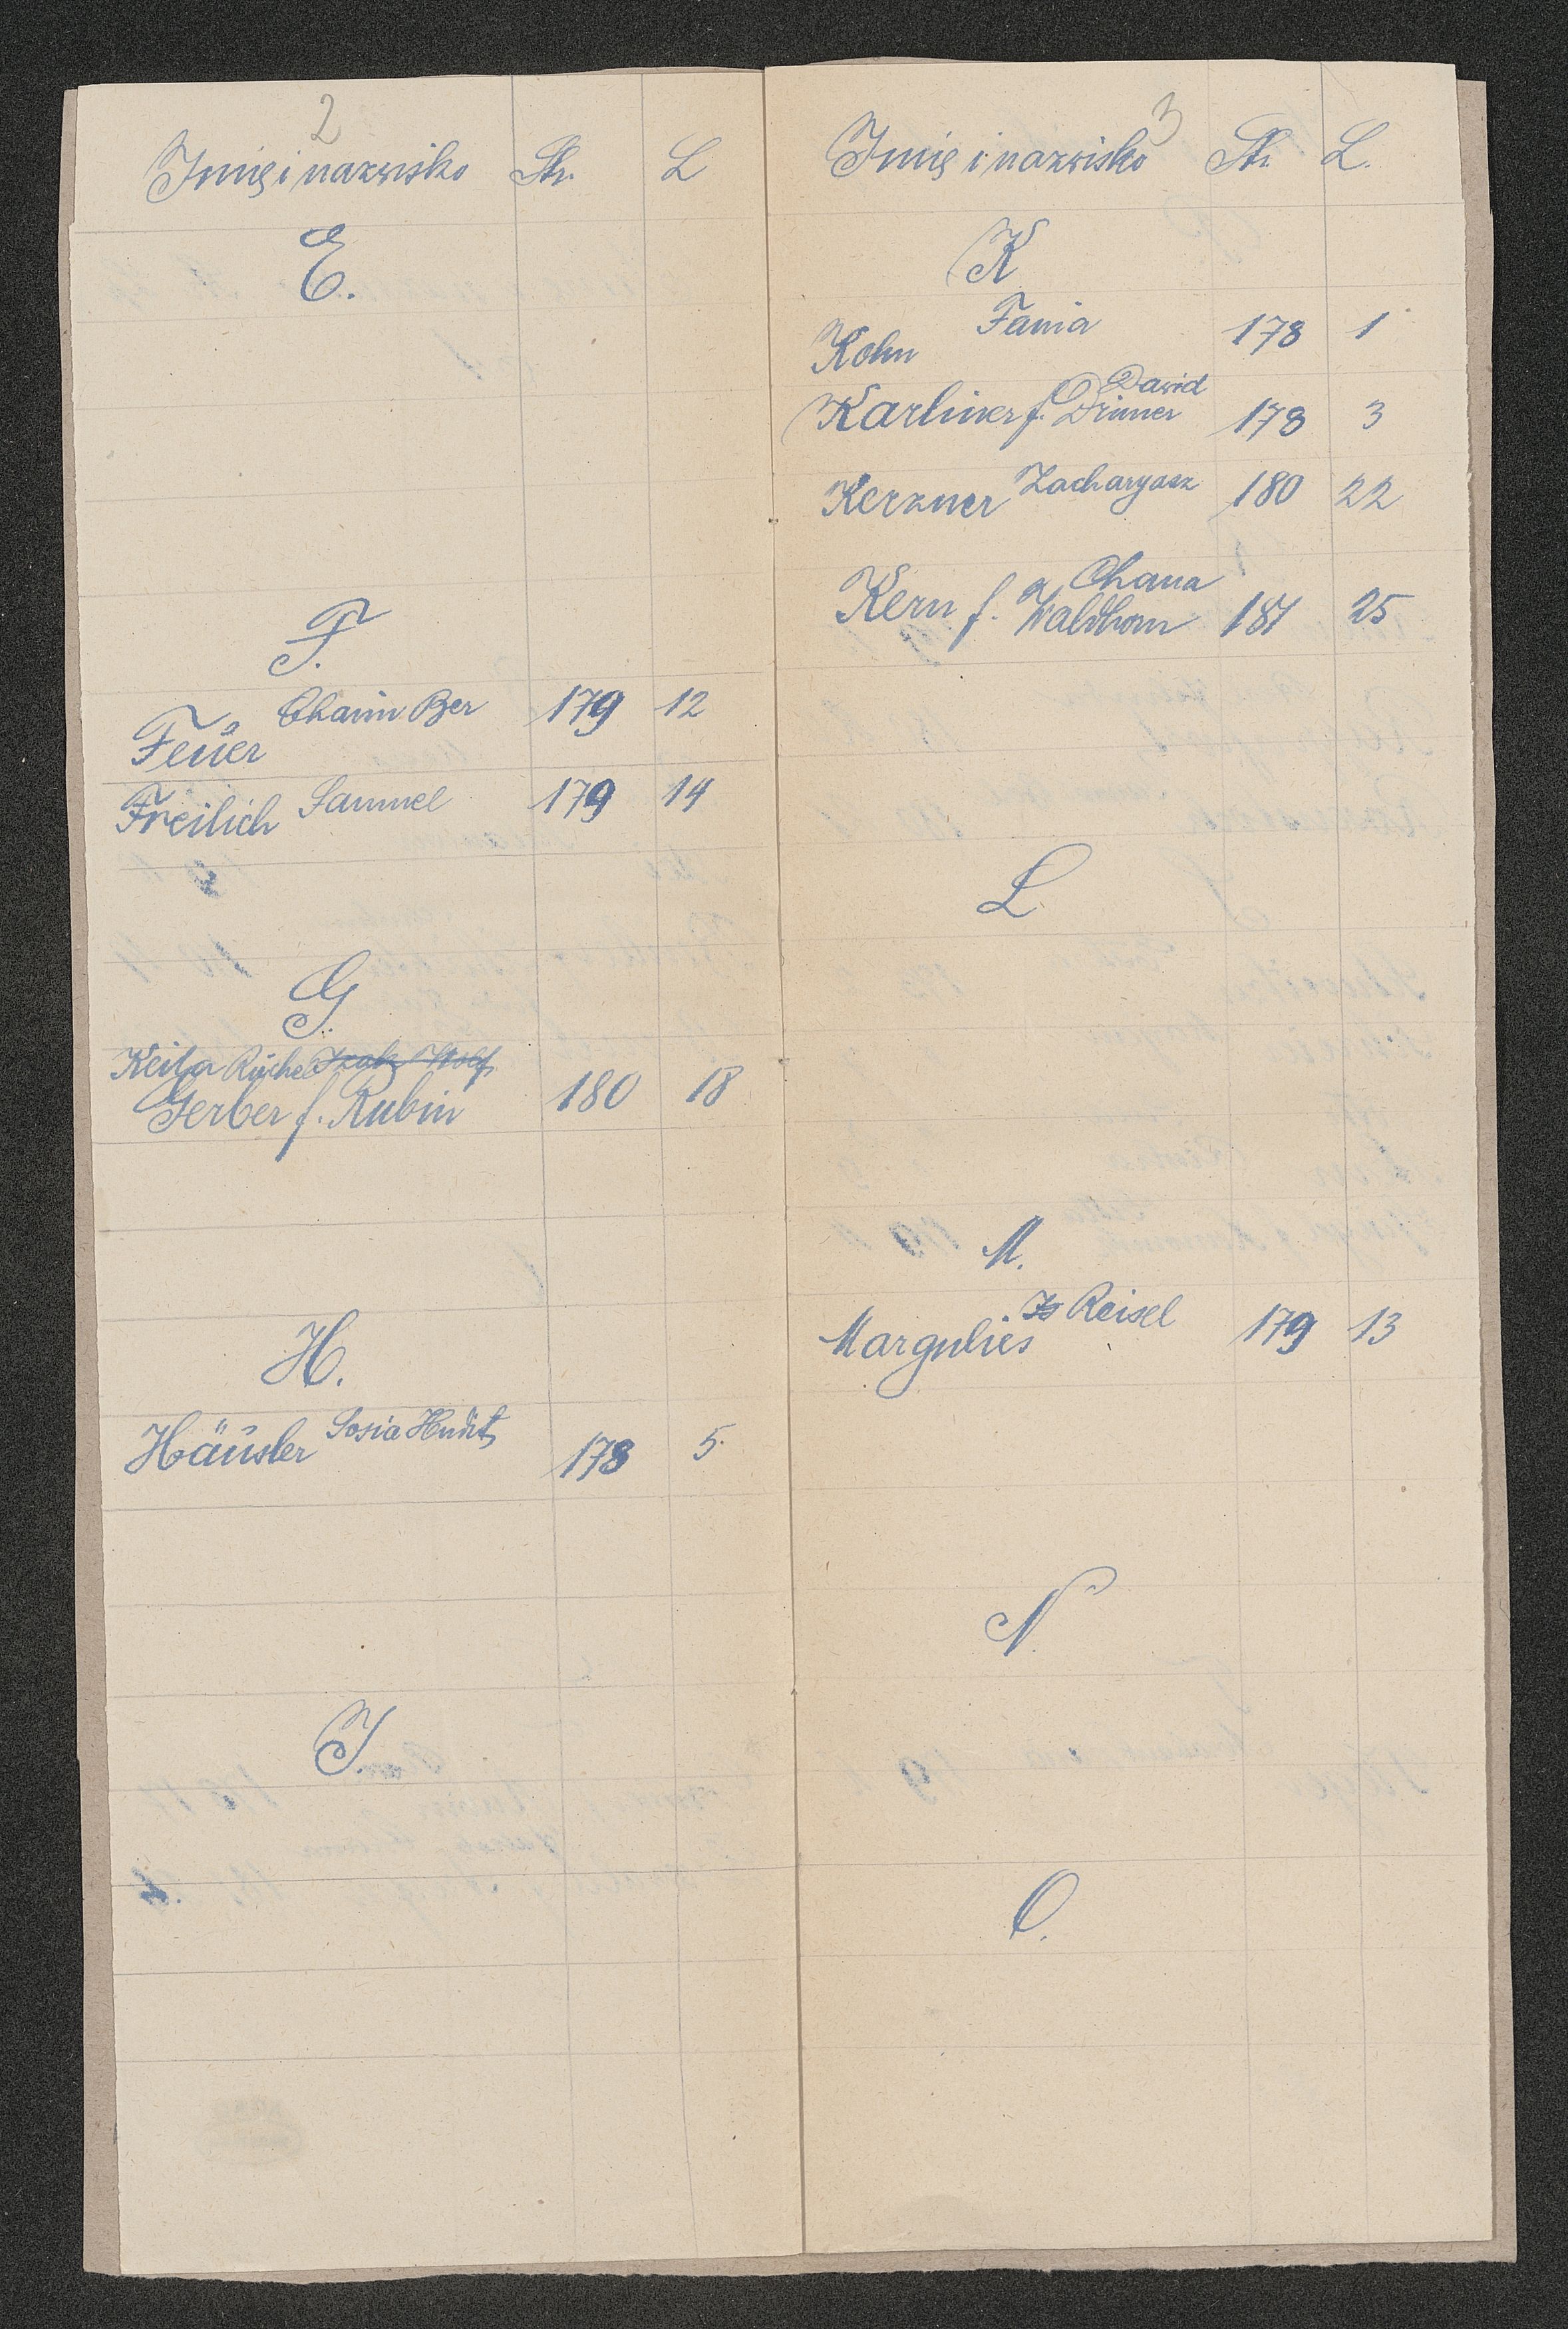 2
Imię i nazwisko Str. L
E.
F.
Chaim Ber 179 12
Feŭer
Freilich Samuel 179 14
G.
Keila Ruchel Izak Wolf
Gerber f. Rubin 180 18
H.
Häusler Sosia Hudit 178 5.
I.
3
Imię i nazwisko Str. L.
K
Fania 178 1
Kohn
David
Karliner f. Drimer 178 3
Kerzner Zacharyasz 180 22
Chana
Kern f. Waldhorn 181 25
L
M.
Reisel
Margulies 179 13
N.
O.